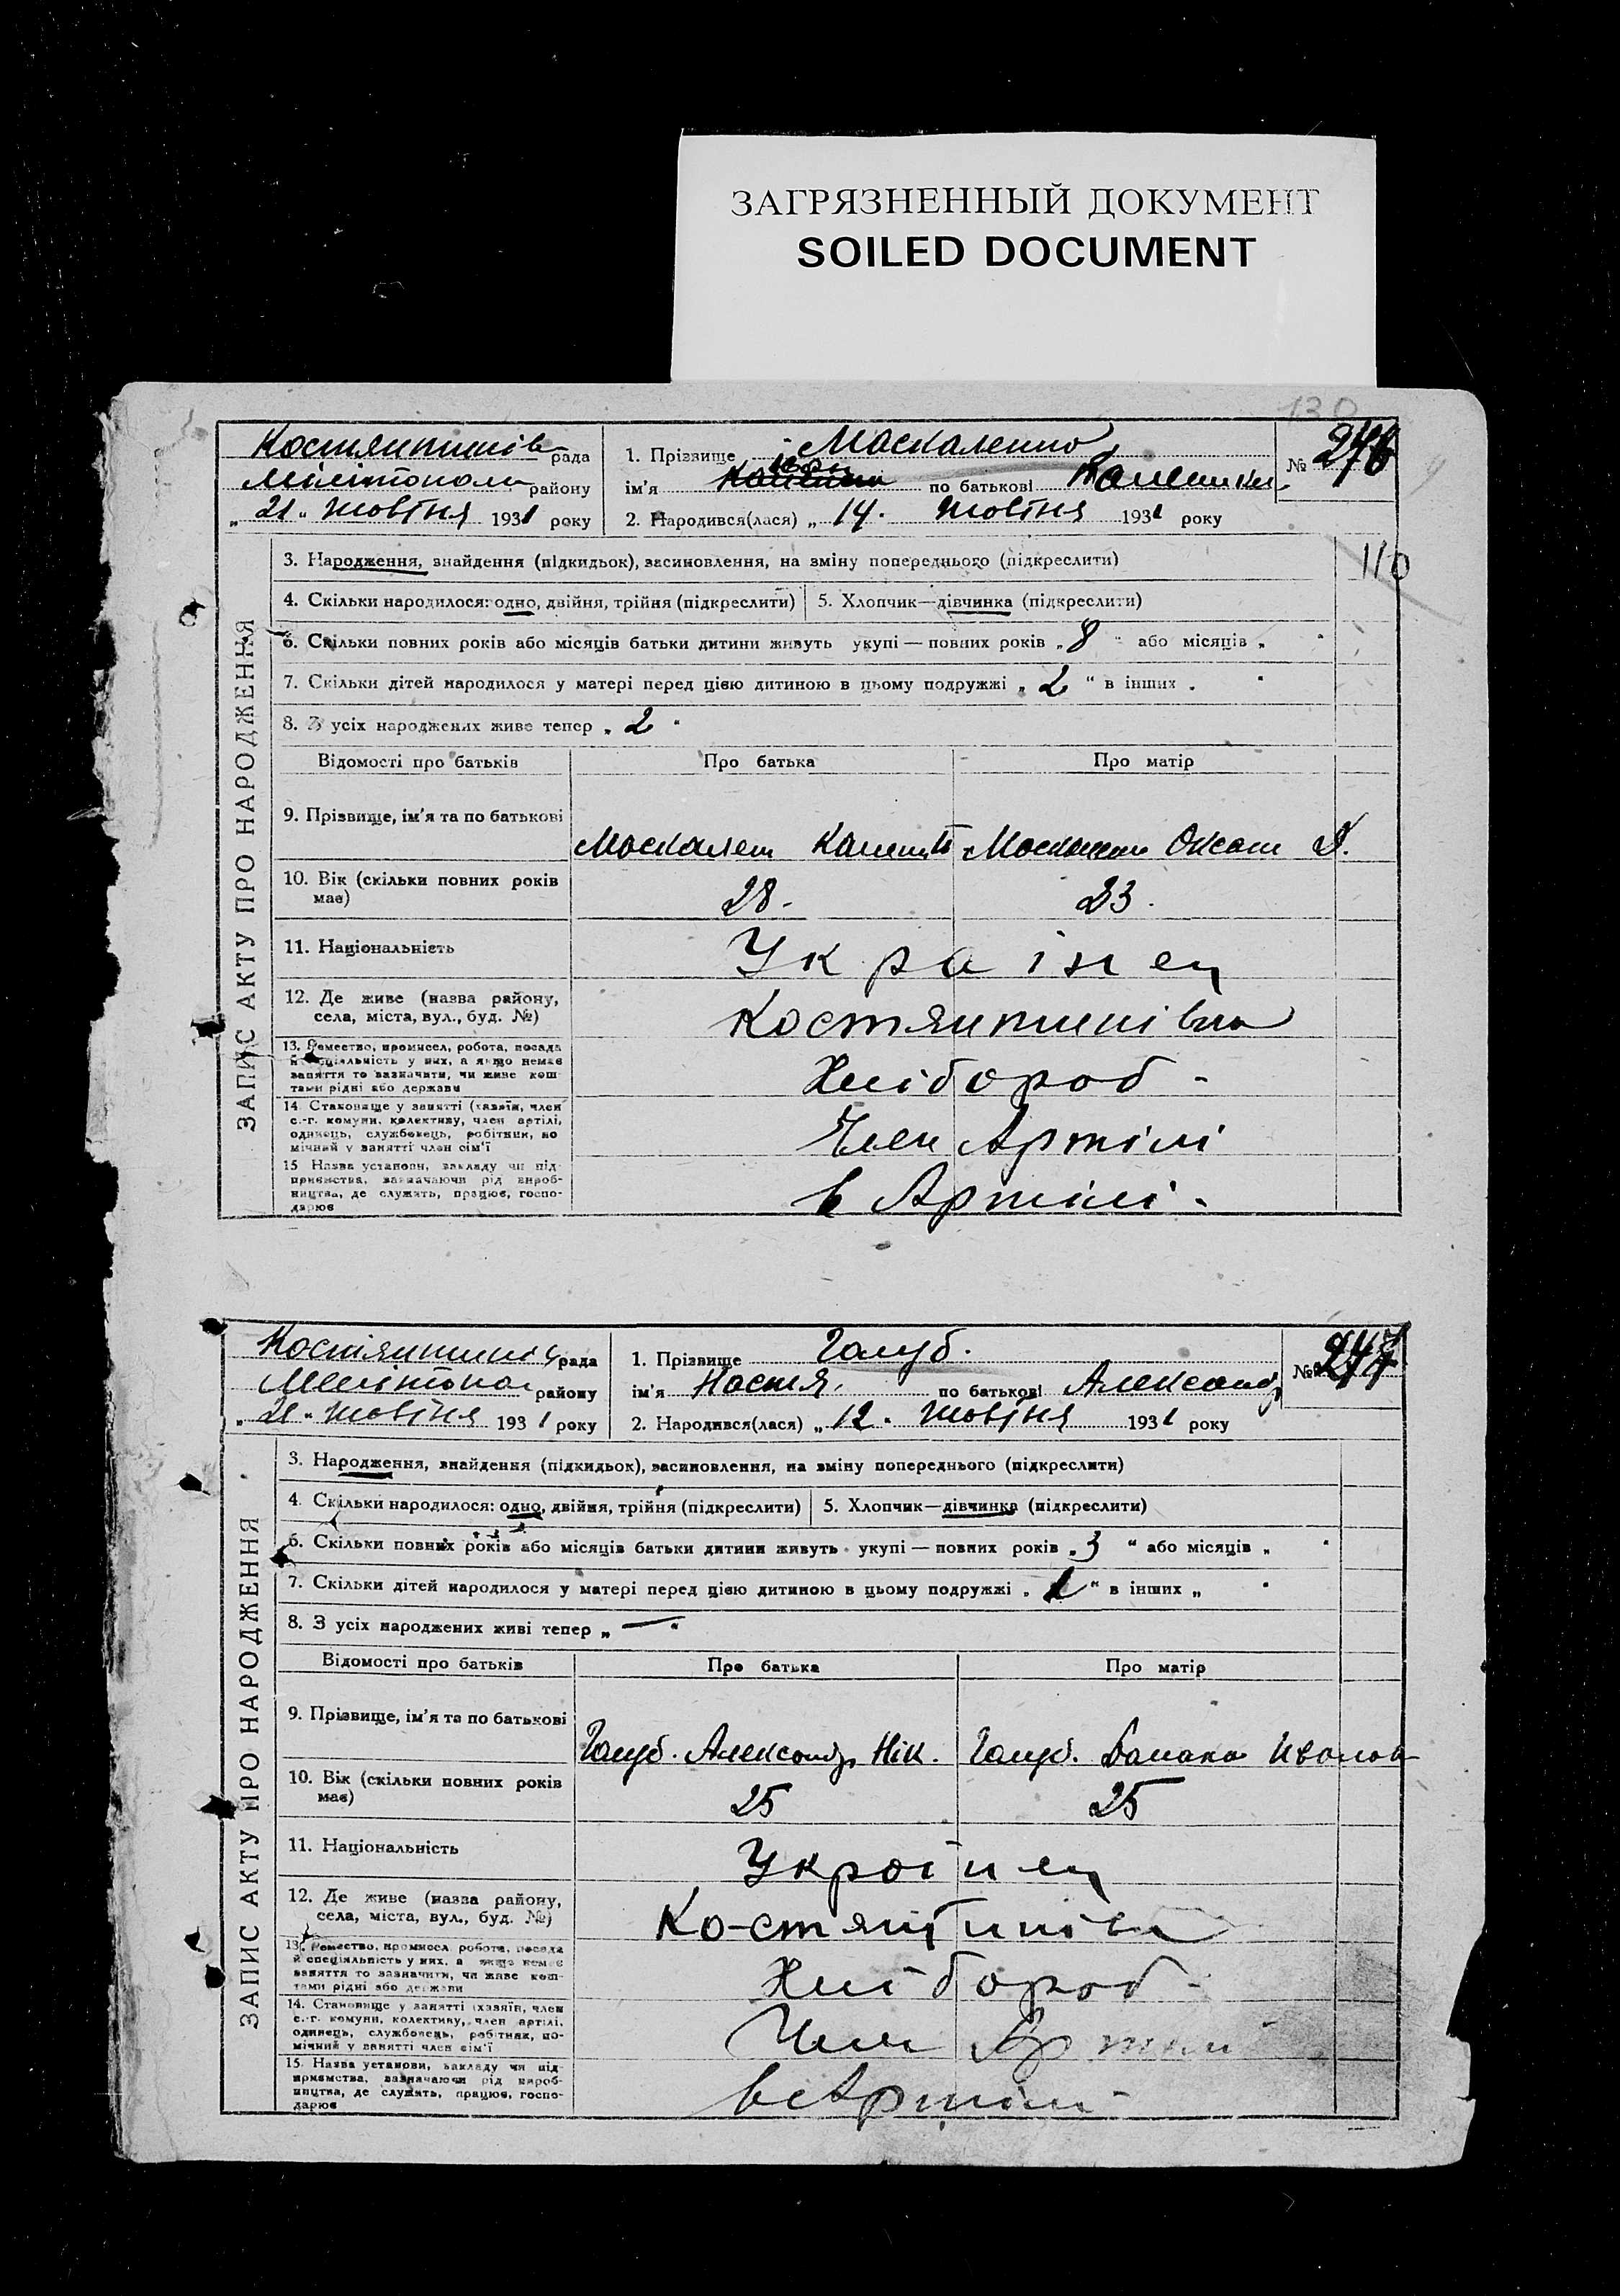 ЗАГРЯЗНЕННЫЙ ДОКУМЕНТ
SOILED DOCUMENT
130
Костянтинів рада
Мелітополь району
„ 21 " жовтня 1931 року
1. Прізвище Маскаленко
ім'я Іван по батькові
2. Народився(лася) „ 14. жовтня 1931 року
№ 246
110
ЗАПИС АКТУ ПРО НАРОДЖЕННЯ
3. Народження, знайдення (підкидьок), засиновлення, на зміну попереднього (підкреслити)
4. Скільки народилося: одно, двійня, трійня (підкреслити) 5. Хлопчик—дівчинка (підкреслити)
6. Скільки повних років або місяців батьки дитини живуть укупі — повних років „ 8 " або місяців „ "
7. Скільки дітей народилося у матері перед цією дитиною в цьому подружжі „ 2 " в інших „ "
8. З усіх народжених живе тепер „ 2 "
Відомості про батьків Про батька Про матір
9. Прізвище, ім'я та по батькові
Маскален Оксан
10. Вік (скільки повних років
має)
28. 23.
11. Національність Українец
12. Де живе (назва району,
села, міста, вул., буд. №)
Костянтинівка
13. Ремество, промисел, робота, посада
й спеціяльність у них, а якщо немає
заняття то зазначити, чи живе кош-
тами рідні або держави
Хлібороб -
14. Становище у занятті (хазяїн, член
с.-г. комуни, колективу, член артілі,
одинець, службовець, робітник, по
мічний у занятті член сім'ї
Член Артілі
15 Назва установи, закладу чи під-
приємства, зазначаючи рід вироб-
ництва, де служить, працює, госпо-
дарює
в Артілі -
Костянтинів рада
Мелітопол району
„ 21 " жовтня 1931 року
1. Прізвище Галуб.
ім'я Настя. по батькові Александр
2. Народився(лася) „ 12. жовтня 1931 року
№ 247
ЗАПИС АКТУ ПРО НАРОДЖЕННЯ
3. Народження, знайдення (підкидьок), засиновлення, на зміну попереднього (підкреслити)
4. Скільки народилося: одно, двійня, трійня (підкреслити) 5. Хлопчик—дівчинка (підкреслити)
6. Скільки повних років або місяців батьки дитини живуть укупі — повних років „ 3 " або місяців „ "
7. Скільки дітей народилося у матері перед цією дитиною в цьому подружжі „ " в інших „ "
8. З усіх народжених живі тепер „ — "
Відомості про батьків Про батька Про матір
9. Прізвище, ім'я та по батькові
Галуб. Александр Нік. Галуб. Иванов
10. Вік (скільки повних років
має)
25 25
11. Національність Українец
12. Де живе (назва району,
села, міста, вул., буд. №)
Костянтинівк
13. Ремество, промисел, робота, посада
й спеціяльність у них, а якщо немає
заняття то зазначити, чи живе кош-
тами рідні або держави
Хлібороб -
14. Становище у занятті (хазяїн, член
с.-г. комуни, колективу, член артілі,
одинець, службовець, робітник, по-
мічний у занятті член сім'ї
Член Артілі
15. Назва установи, закладу чи під-
приємства, зазначаючи рід вироб-
ництва, де служить, працює, госпо-
дарює
в Артілі -